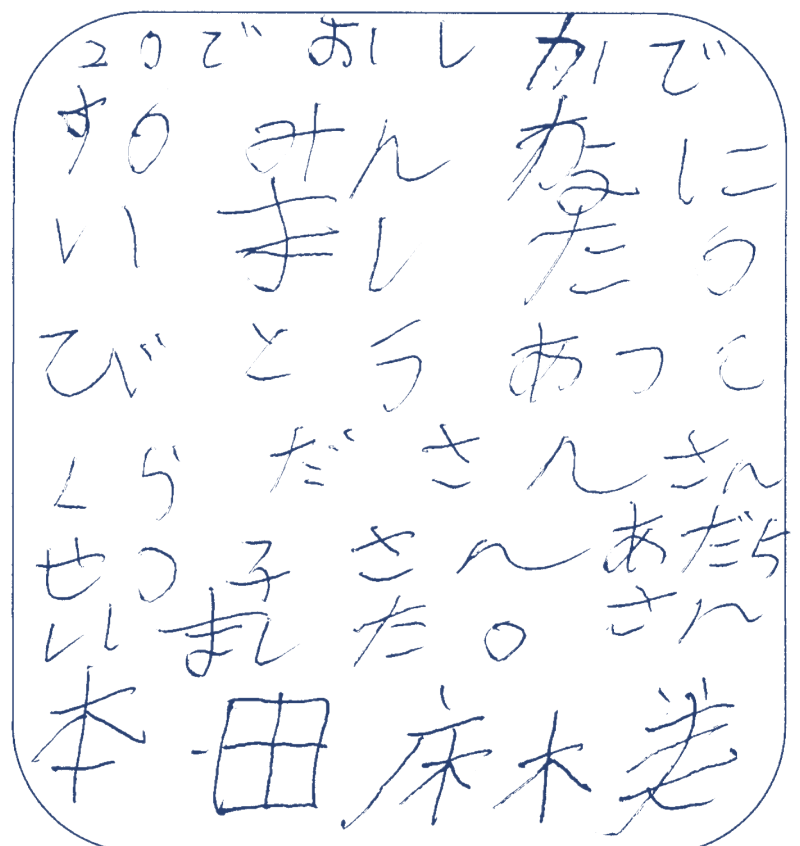 20でおしいかで
す。みんなに
いいましたつ
びとうあつこ
くらださんさん
せつ子さんあだち
いいました。さん
本田麻